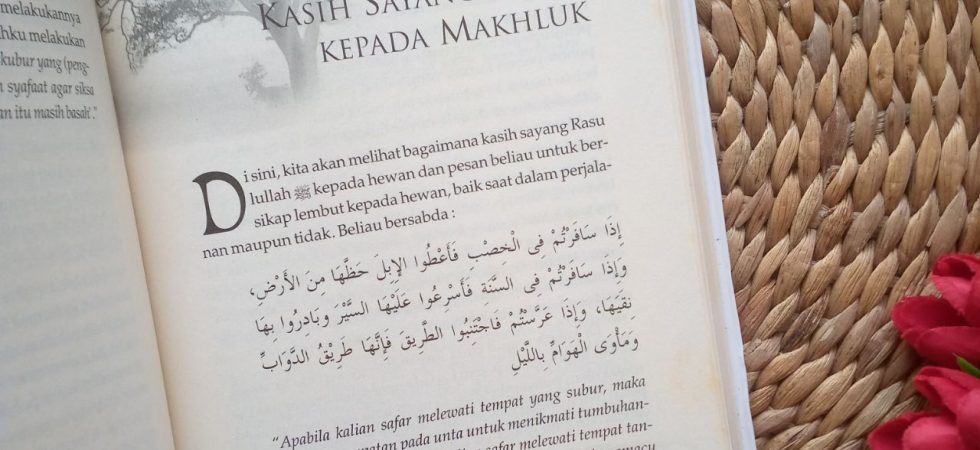 melakukannya
hku melakukan
kubur yang (peng-
syafaat agar siksa
itu masih basah'."
KASIH SAYANG
KEPADA MAKHLUK
Di sini, kita akan melihat bagaimana kasih sayang Rasu
lullah ﷺ kepada hewan dan pesan beliau untuk ber-
sikap lembut kepada hewan, baik saat dalam perjala-
nan maupun tidak. Beliau bersabda :
إِذَا سَافَرْتُمْ فِى الْخِصْبِ فَأَعْطُوا الإِبِلَ حَظَّهَا مِنَ الأَرْضِ،
وَإِذَا سَافَرْتُمْ فِى السَّنَةِ فَأَسْرِعُوا عَلَيْهَا السَّيْرَ وَبَادِرُوا بِهَا
نِقْيَهَا، وَإِذَا عَرَّسْتُمْ فَاجْتَنِبُوا الطَّرِيْقَ فَإِنَّهَا طَرِيْقُ الدَّوَابِّ
وَمَأْوَى الْهَوَامِّ بِاللَّيْلِ
"Apabila kalian safar melewati tempat yang subur, maka
pada unta untuk menikmati tumbuhan-
safar melewati tempat tan-